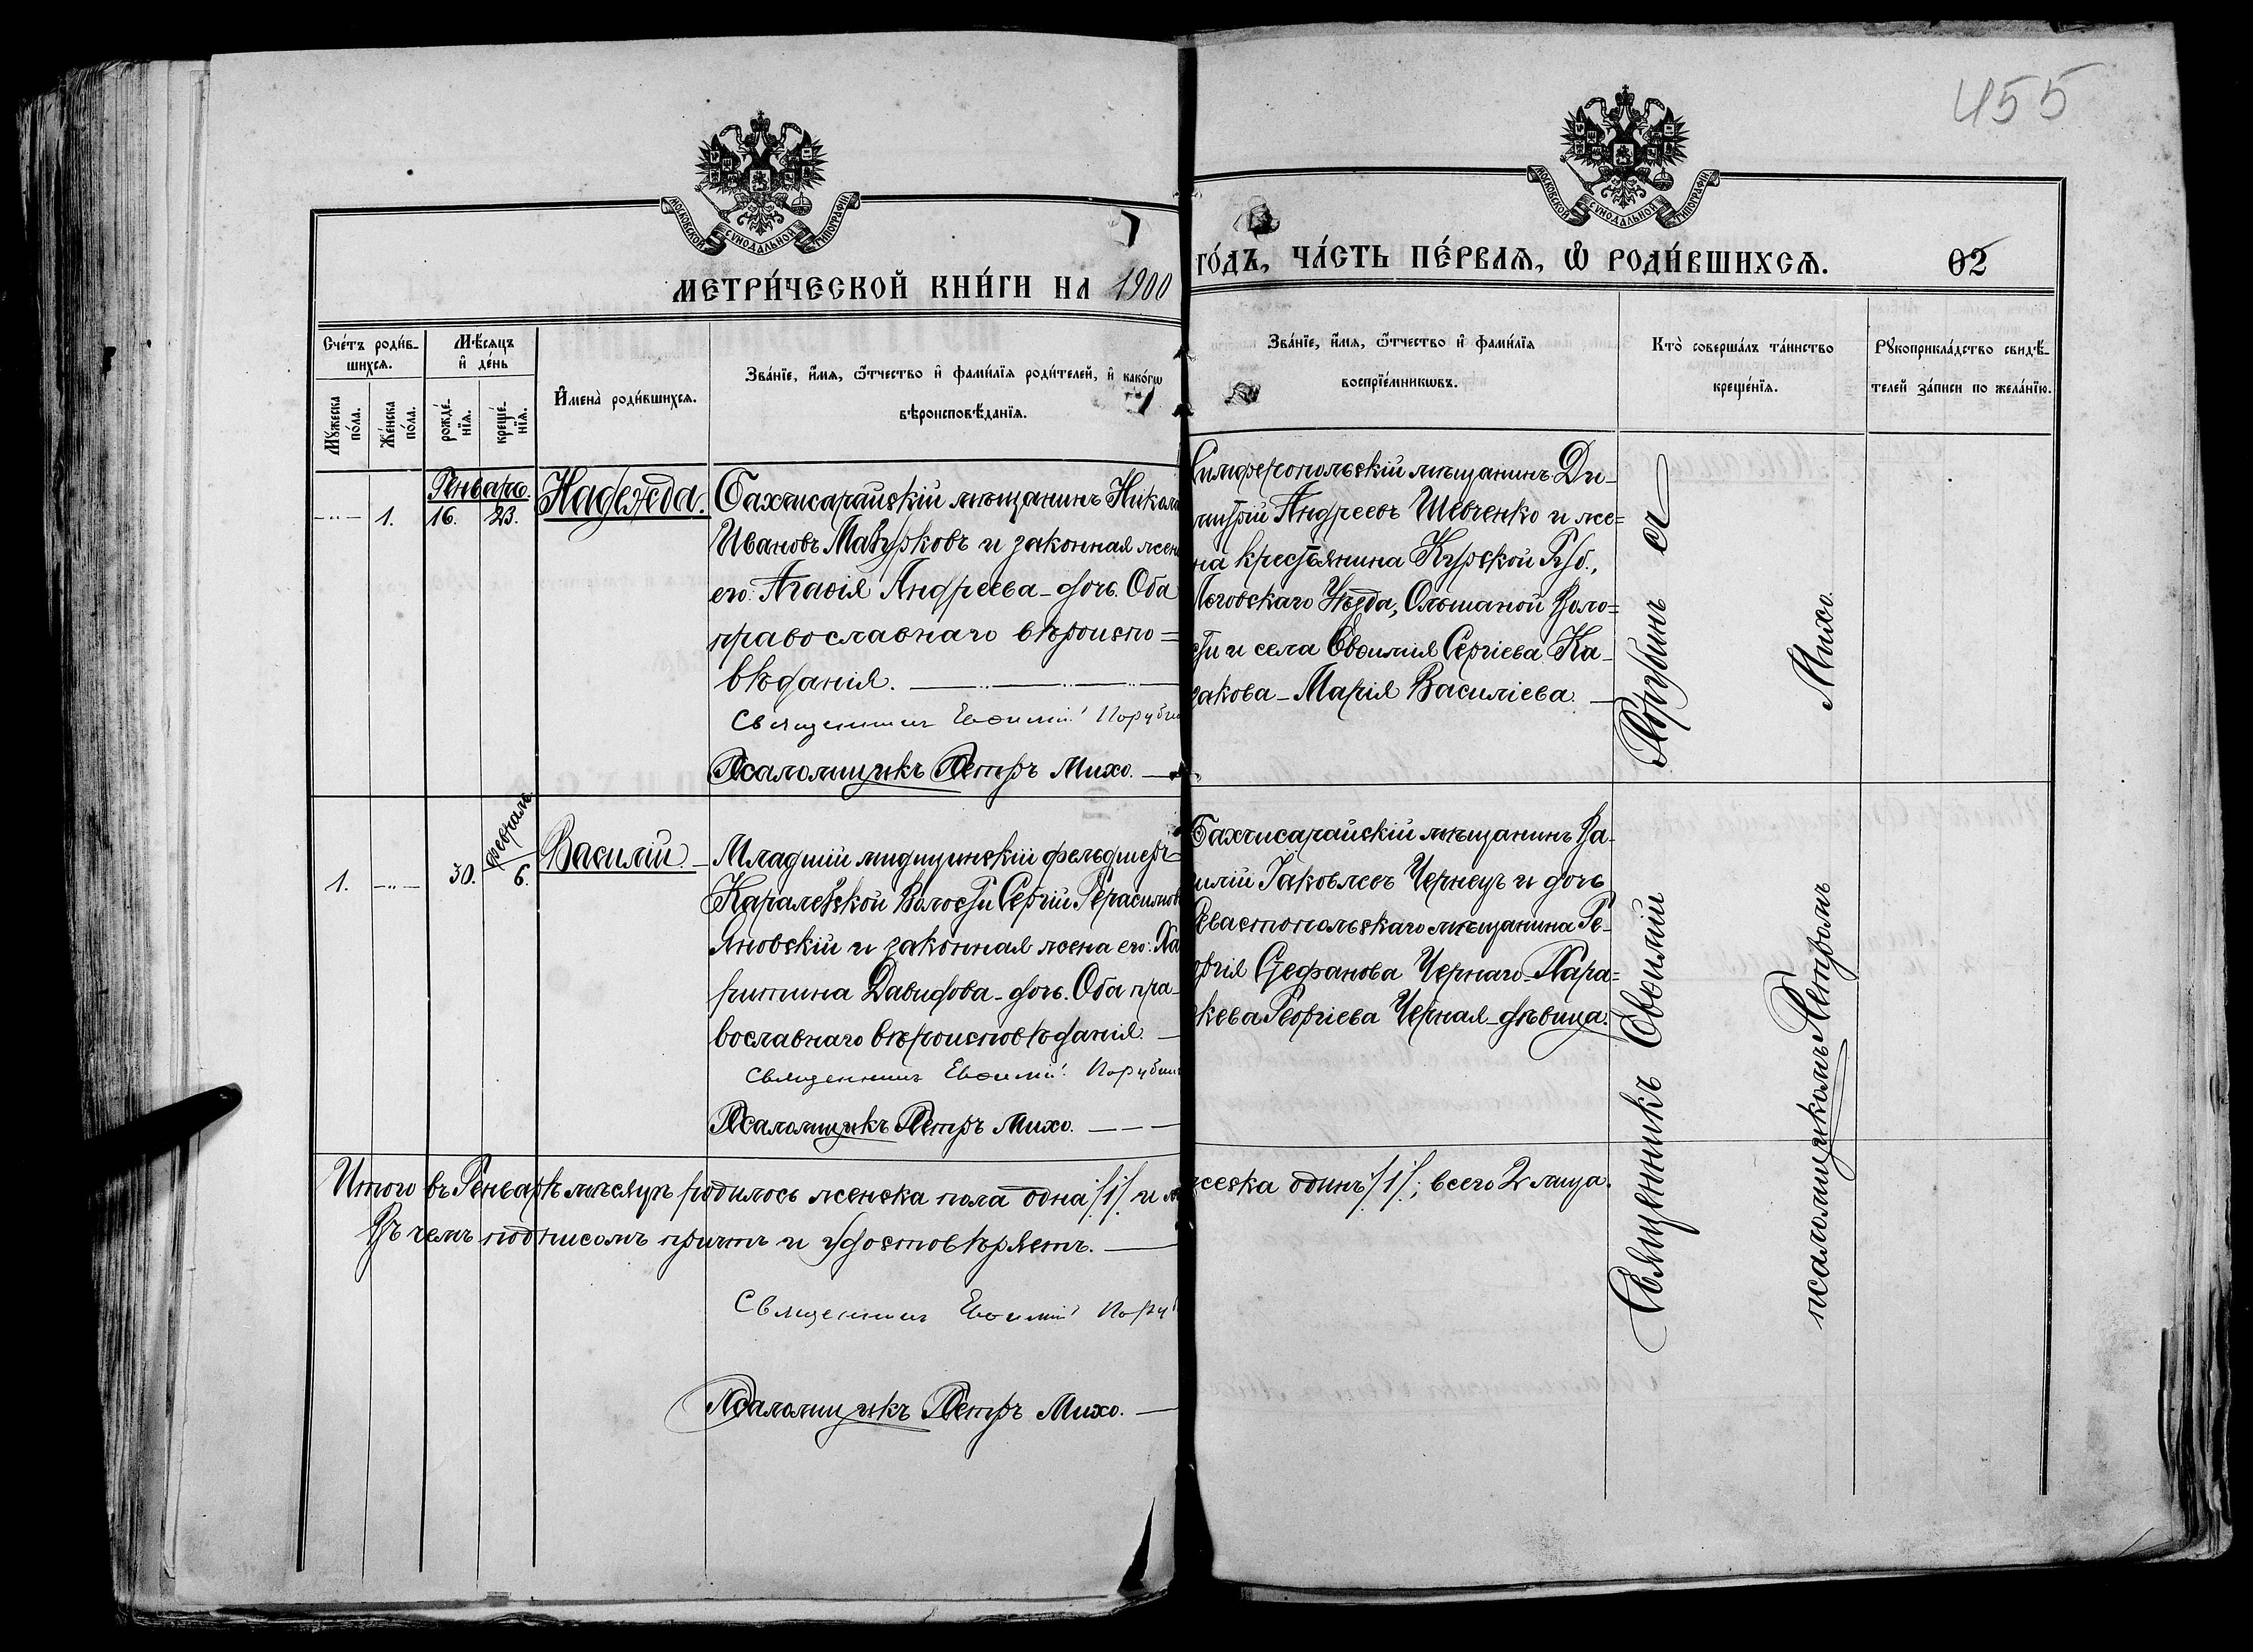 455
МОСКОВСКОЙ СѴНОДАЛЬНОЙ ТИПОГРАФІИ
МОСКОВСКОЙ СѴНОДАЛЬНОЙ ТИПОГРАФІИ
МЕТРИ́ЧЕСКОЙ КНИ́ГИ НА 1900
ГО́ДЪ, ЧА́СТЬ ПЕ́РВАѦ, Ѡ҆ РОДИ́ВШИХСѦ.
02
Сче́тъ роди́в-
шихсѧ.
Мѣ́сѧцъ
и҆ де́нь
Мꙋ́жеска
по́ла.
Же́нска
по́ла.
рожде́-
нїѧ.
креще́-
нїѧ.
И҆мена̀ роди́вшихсѧ.
Зва́нїе, и҆́мѧ, ѻ҆́тчество и҆ фами́лїѧ роди́телей, и҆ како́гѡ
вѣроисповѣ́данїѧ.
Зва́нїе, и҆́мѧ, ѻ҆́тчество и҆ фами́лїѧ
воспрїе́мникѡвъ.
Кто̀ соверша́лъ та́инство
креще́нїѧ.
Рꙋкоприкла́дство свидѣ́-
телей за́писи по жела́нїю.
Генварь.
—"— 1. 16. 23.
Надежда.
Бахчисарайскій мѣщанинъ Никола
Ивановъ Мазурковъ и законная жен
его: Агаѳія Андреева – дочь. Оба
православнаго вѣроиспо=
вѣданія.
Священникъ Евѳимій Поруби
Псаломщикъ Петръ Михо.
Симферопольскій мѣщанинъ Ди-
митрій Андреевъ Шевченко и же=
на крестьянина Курской Губ.,
Льговскаго Уѣзда, Ольшаной Воло=
сти и села Евѳимія Сергіева Ка-
закова – Марія Василіева.
февраль.
1. —"— 30. 6.
Василій.
Младшій мидицинскій фельдшеръ
Каралезской Волости Сергій Герасимов
Яновскій и законная жена его: Ха
ритина Давидова – дочь. Оба пра-
вославнаго вѣроисповѣданія.
Священникъ Евѳимій Порубин
Псаломщикъ Петръ Михо.
Бахчисарайскій мѣщанинъ Ва-
силій Іаковлевъ Чернецъ и дочь
Севастопольскаго мѣщанина Ге-
оргія Стефанова Чернаго – Пара=
скева Георгіева Черная – дѣвица.
Священникъ Евѳимій Порубинъ съ
псаломщикомъ Петромъ Михо.
Итого въ Генварѣ мѣсяцѣ родилось женска пола одна /1/ и м
жеска одинъ /1/; всего 2 лица.
Въ чемъ подписомъ причтъ и удостовѣряетъ.
Священникъ Евѳимій Поруб
Псаломщикъ Петръ Михо.